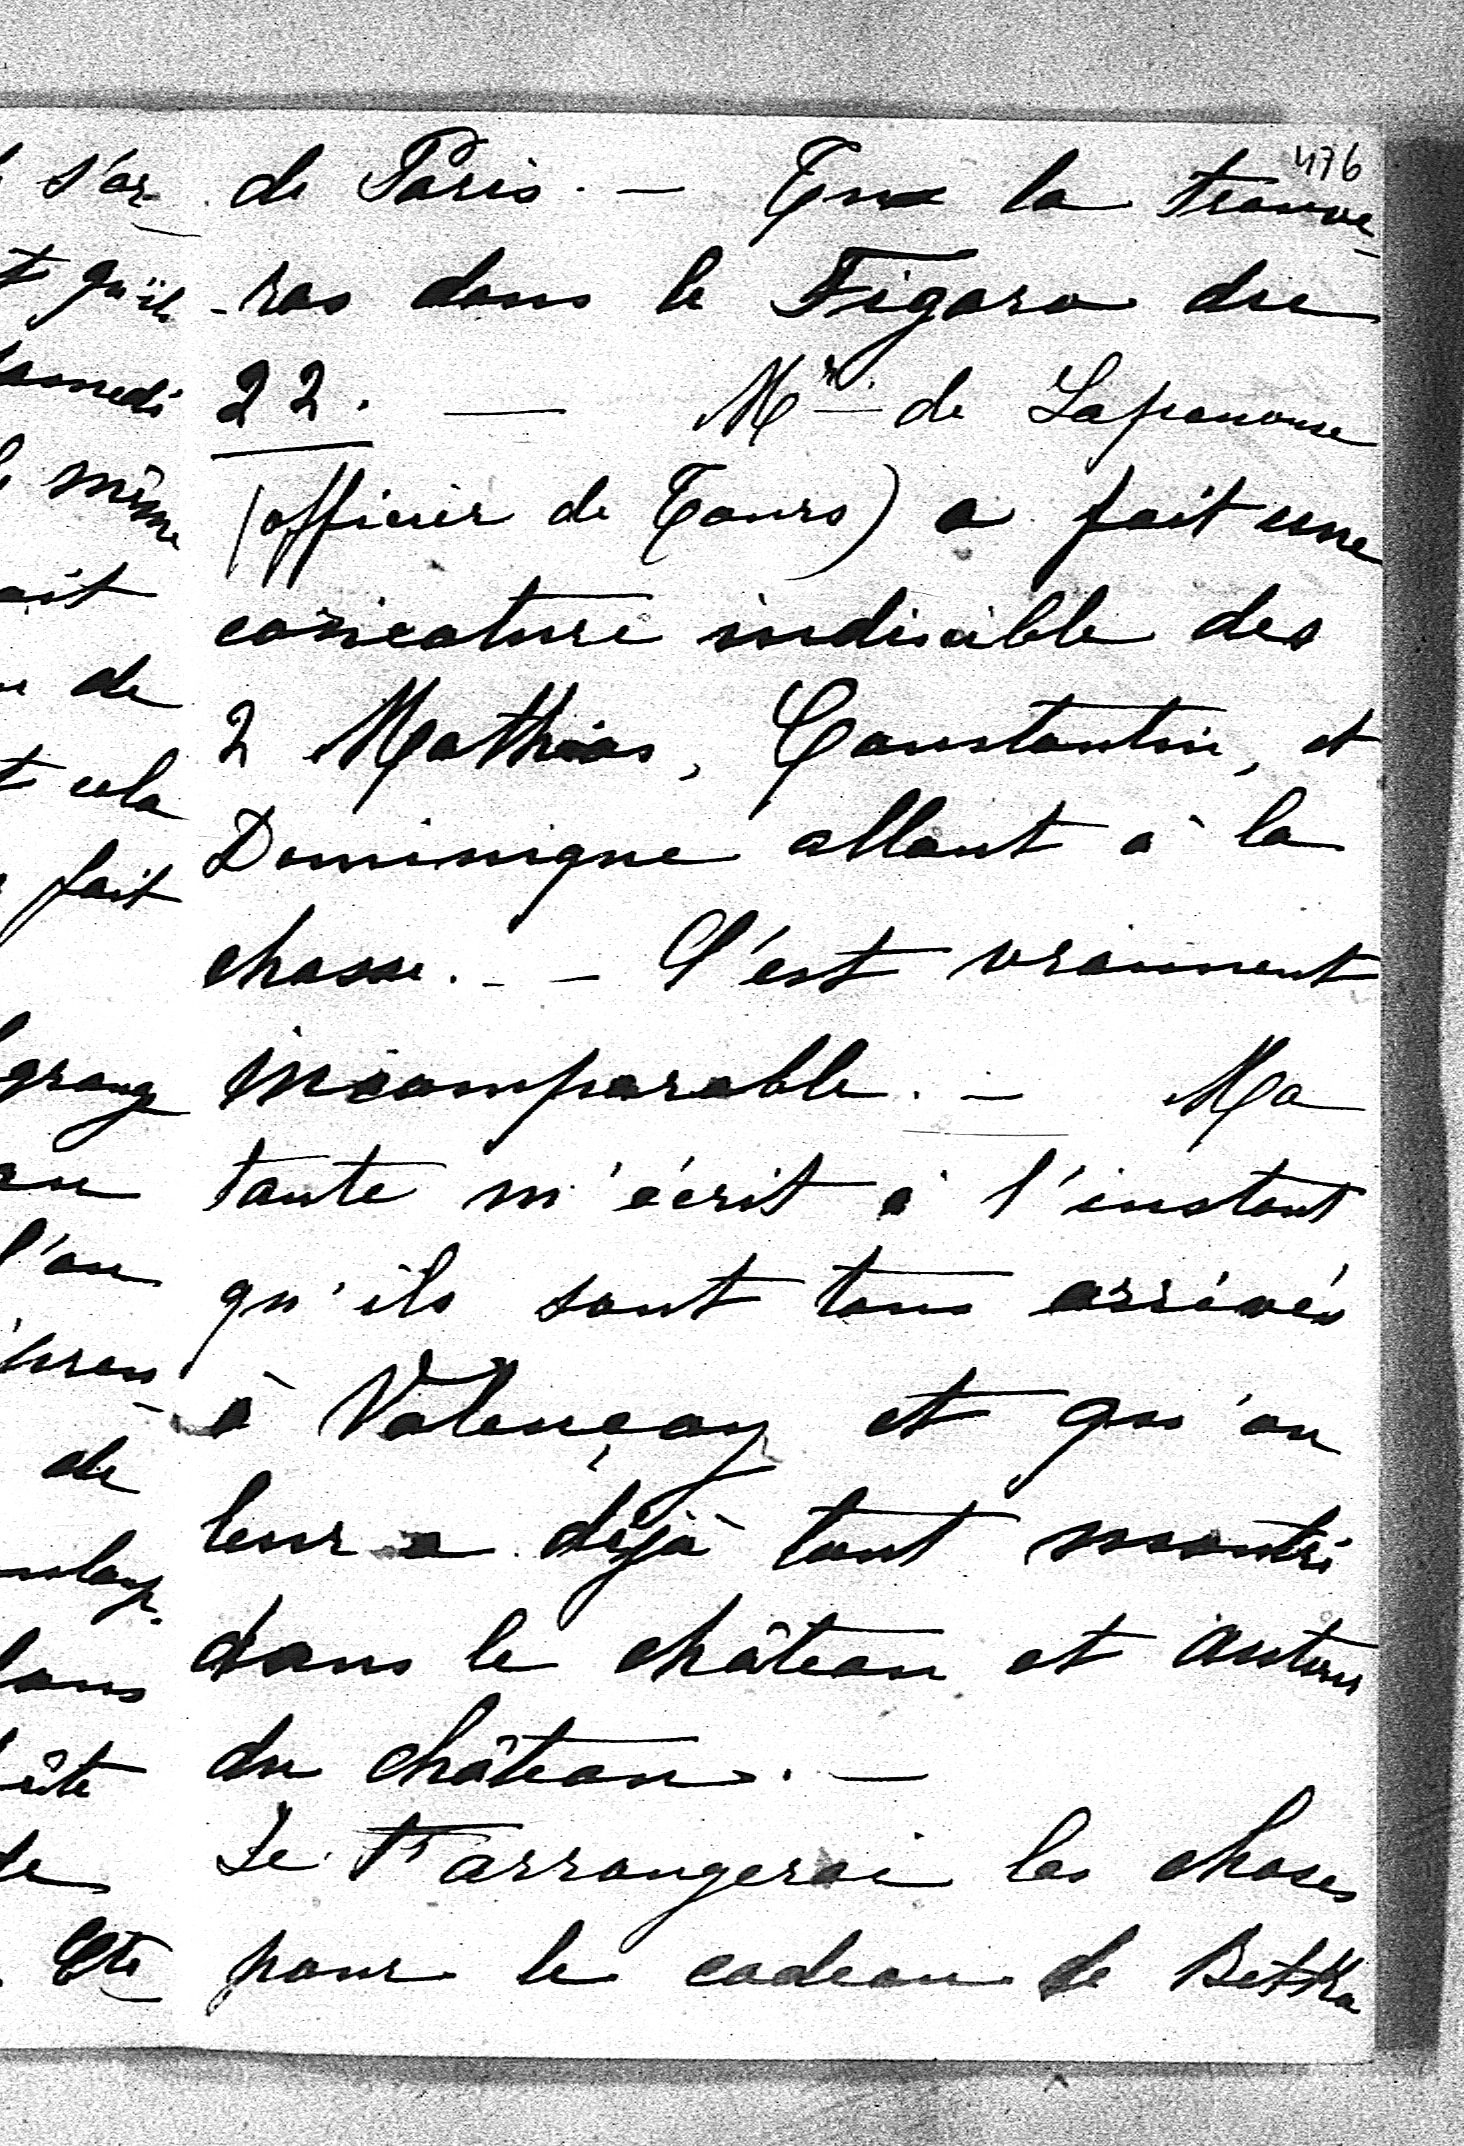 476
de Paris. — Tu la trouve-
-ras dans le Figaro du
22. — Mr. de Lapanouse
(officier de Tours) a fait une
caricature indicible des
2 Mathias, Constantin, et
Dominique allant à la
chasse. - — C'est vraiment
incomparable. — Ma
tante m'écrit à l'instant
qu'ils sont tous arrivés
à Valençay et qu'on
leur a déjà tout montré
dans le château et autour
du château. —
Je t'arrangerai les choses
pour le cadeau de Betka
s'ar
qu'ils
samedi
même
ait
de
cela
fait
grang
au
l'on
de
dans
de
Cte